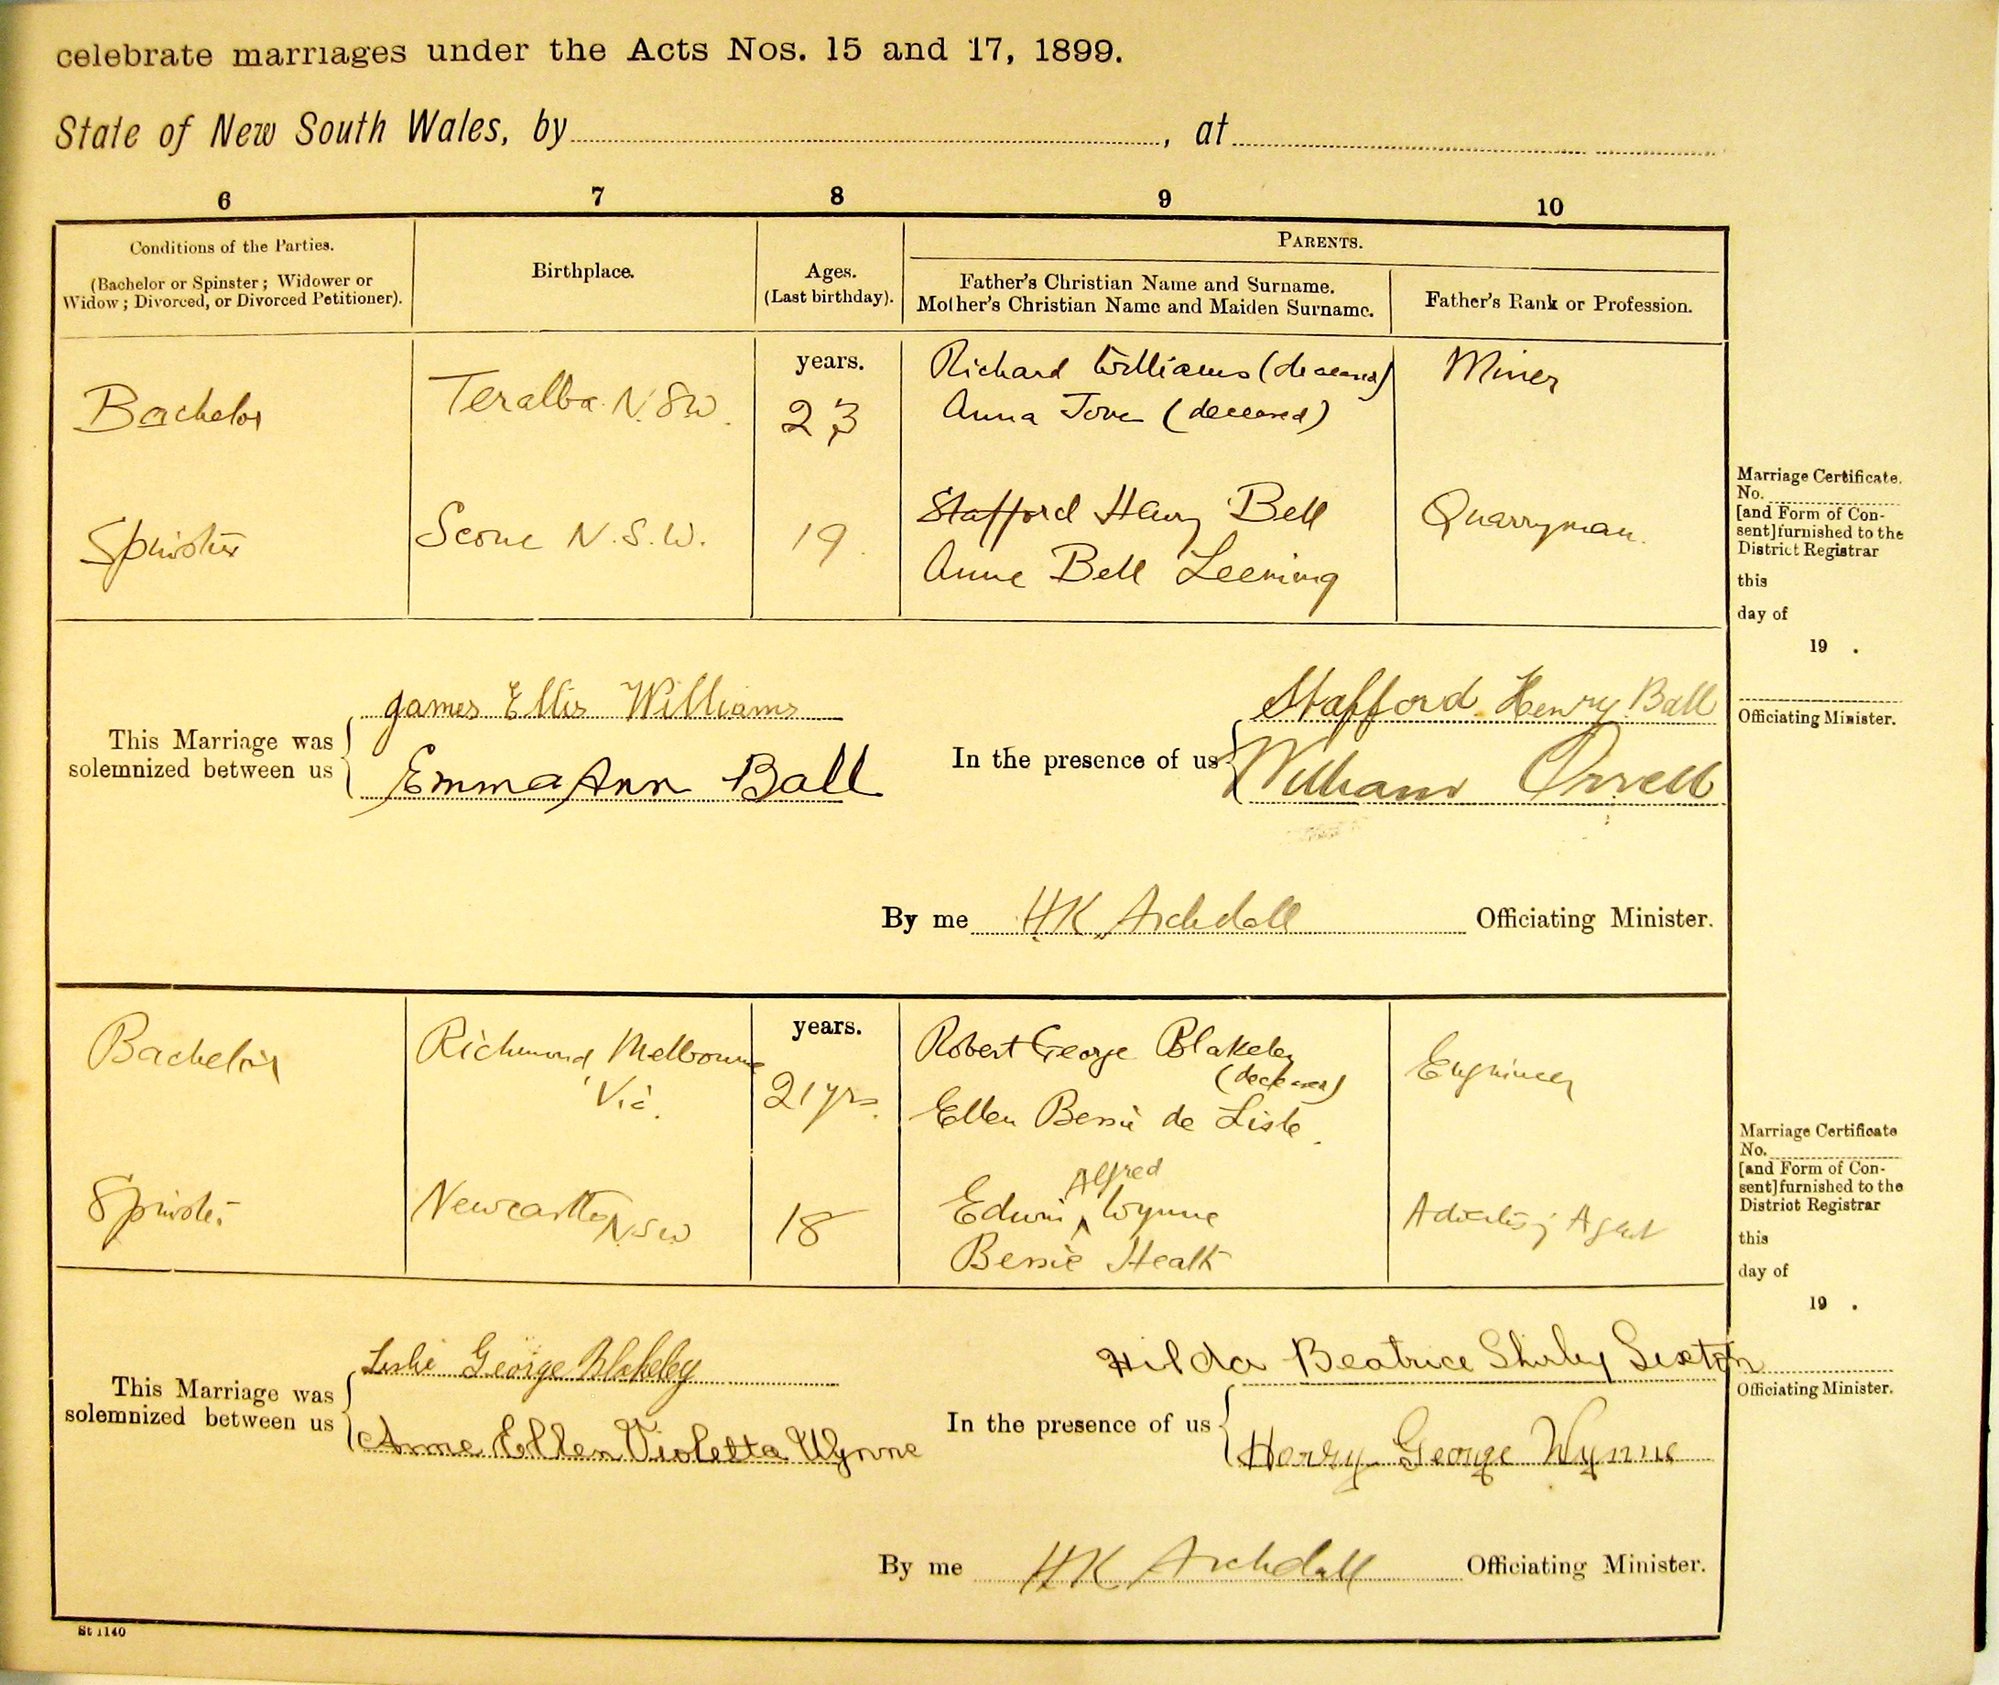 celebrate marriages under the Acts Nos. 15 and 17, 1899.
State of New South Wales, by , at
6 7 8 9 10
Conditions of the Parties.
(Bachelor or Spinster; Widower or
Widow; Divorced, or Divorced Petitioner).
Birthplace.
Ages.
(Last birthday).
PARENTS.
Father's Christian Name and Surname.
Mother's Christian Name and Maiden Surname.
Father's Rank or Profession.
Bachelor
Teralba N.S.W.
years.
23
Richard Williams (deceased)
Anna (deceased)
Miner
Spinster
Scone N.S.W.
19.
Stafford Henry Bell
Anne Bell Leeming
Quarryman.
Marriage Certificate.
No.
[and Form of Con-
sent] furnished to the
District Registrar
this
day of
19 .
Officiating Minister.
This Marriage was
solemnized between us
James Ellis Williams
Emma Ann Ball
In the presence of us
Stafford Henry Ball
William Orrell
By me H.K. Archdall Officiating Minister.
Bachelor
Richmond Melbourne
Vic.
years.
21 yrs.
Robert George Blakeley
(deceased)
Ellen Bessie de Lisle.
Engineer
Spinster
Newcastle
NSW
18
Alfred
Edwin ^ Wynne
Bessie Heath
Advertising Agent
Marriage Certificate
No.
[and Form of Con-
sent] furnished to the
District Registrar
this
day of
19 .
Officiating Minister.
This Marriage was
solemnized between us
Leslie George Blakeley
Anne Ellen Violetta Wynne
In the presence of us
Hilda Beatrice Shirley Sexton
Harry George Wynne
By me HK Archdall Officiating Minister.
St 1140